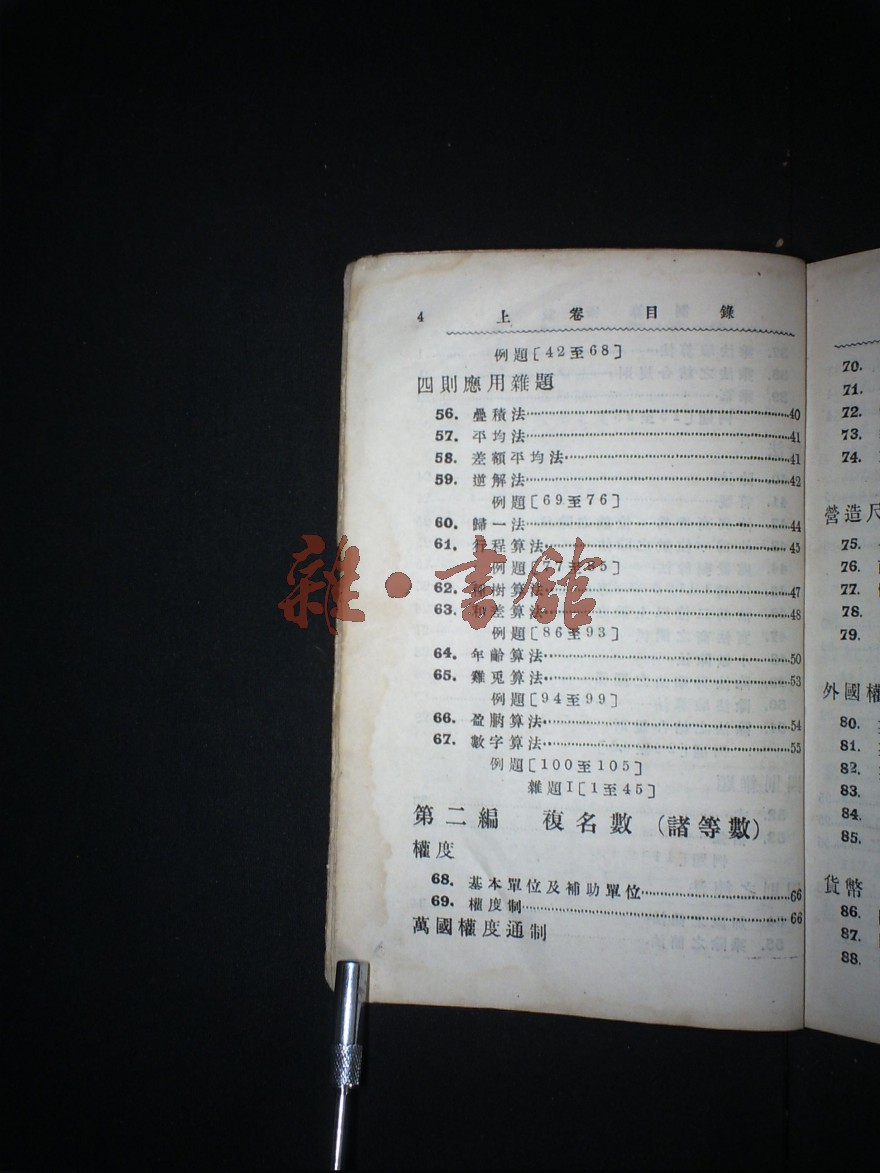 4 上卷目錄
例題[42至68]
四則應用雜題
56. 疊積法……40
57. 平均法……41
58. 差額平均法……41
59. 逆解法……42
例題[69至76]
60. 歸一法……44
61. 行程算法……45
例題[77至85]
62. 種樹算法……47
63. 和差算法……48
例題[86至93]
64. 年齡算法……50
65. 雞兎算法……53
例題[94至99]
66. 盈朒算法……54
67. 數字算法……55
例題[100至105]
雜題I[1至45]
第二編 複名數 (諸等數)
權度
68. 基本單位及補助單位……66
69. 權度制……66
萬國權度通制
雜·書館
70.
71.
72.
73.
74.
營造尺
75.
76.
77.
78.
79.
外國權
80.
81.
82.
83.
84.
85.
貨幣
86.
87.
88.